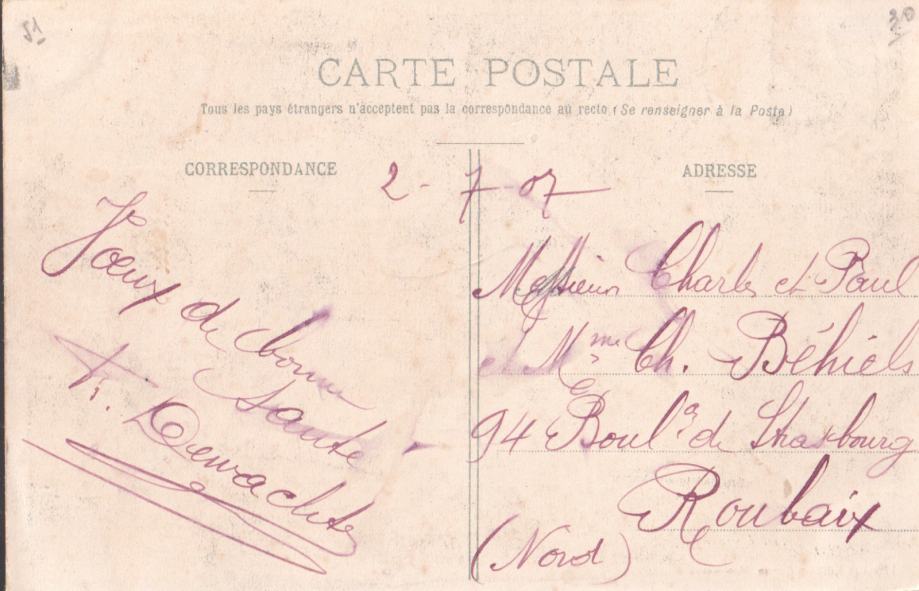 51
30
CARTE POSTALE
Tous les pays étrangers n'acceptent pas la correspondance au recto (Se renseigner à la Poste)
CORRESPONDANCE
2-7-07
Vœux de bonne
santé
F. Dewachte
ADRESSE
Messieurs Charles et Paul
et Mme Ch. Béhiels
94 Bould de Strasbourg
Roubaix
(Nord)